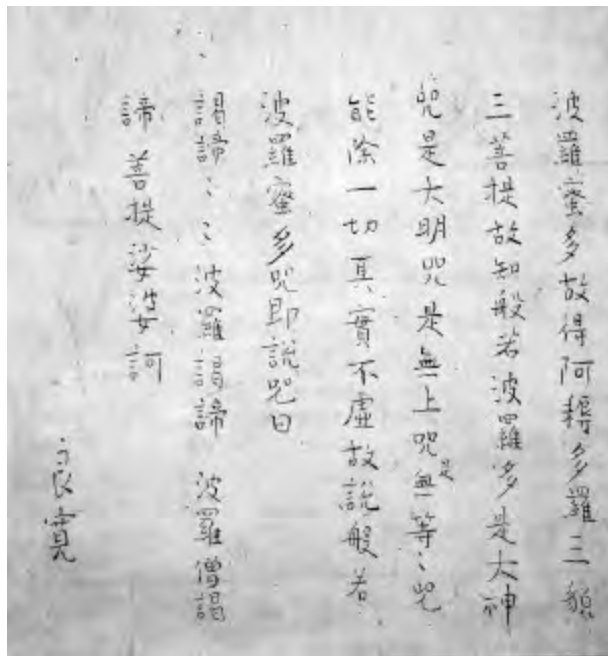 波羅蜜多故得阿耨多羅三藐
三菩提故知般若波羅多是大神
咒是大明咒是無上咒是無等〻咒
能除一切真實不虛故說般若
波羅蜜多咒即說咒曰
謁諦〻〻波羅謁諦 波羅僧謁
諦 菩提娑婆訶
良寛